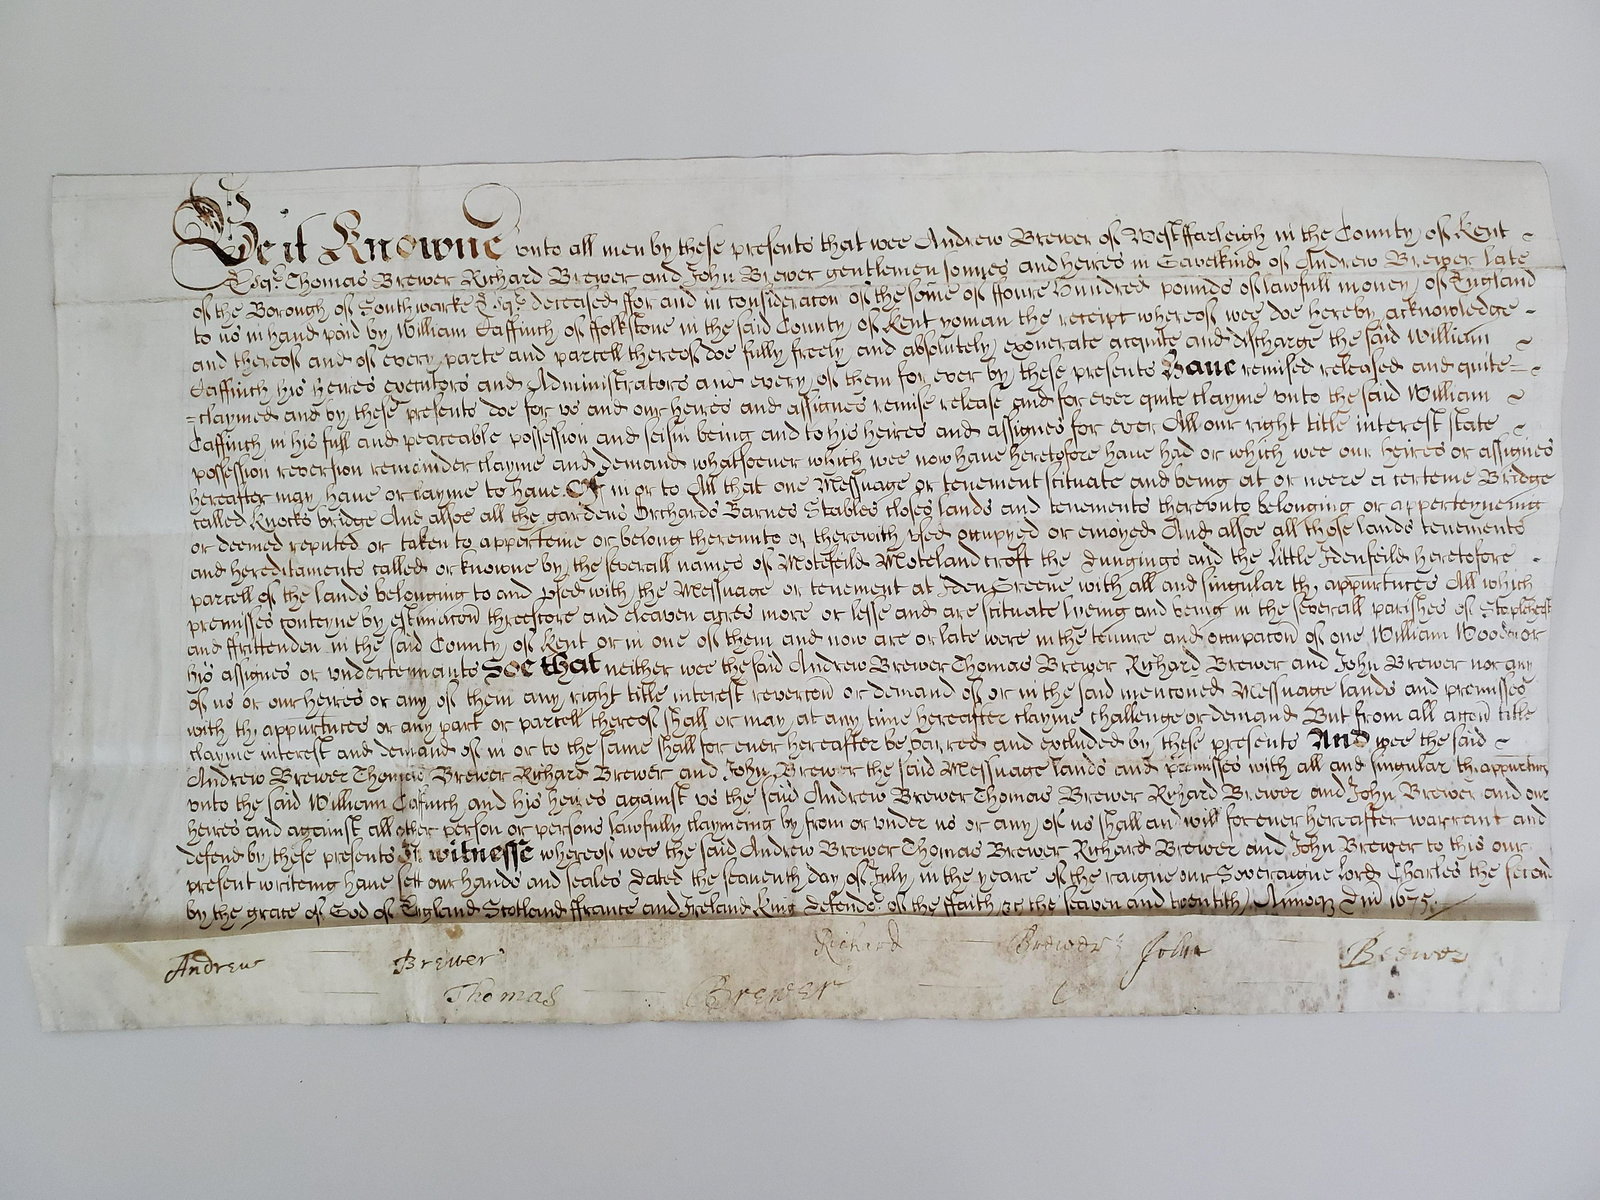 Be it Knowne unto all men by these presents that wee Andrew Brewer of West ffarleigh in the County of Kent
Esqr. Thomas Brewer Richard Brewer and John Brewer gentlemen sonnes and heires in Gavelkind of Andrew Brewer late
of the Borough of Southwarke Esqr. deceased ffor and in consideracon of the some of ffoure hundred pounds of lawfull money of England
to us in hand paid by William Caffinch of ffolkstone in the said County of Kent yoman the receipt whereof wee doe hereby acknowledge
and thereof and of every parte and parcell thereof doe fully freely and absolutely exonerate acquite and discharge the said William
Caffinch his heires executors and Administrators and every of them for ever by these presents Have remised released and quite=
=claymed and by these presents doe for us and our heires and assignes remise release and for ever quite clayme unto the said William
Caffinch in his full and peaceable possession and seisin being and to his heires and assignes for ever All our right title interest state
possession reversion remainder clayme and demand whatsoever which wee now have heretofore have had or which wee our heires or assignes
hereafter may have or clayme to have Of in or to All that one Messuage or tenement scituate and being at or neere a certeine Bridge
called Knocks bridge And allsoe all the gardens Orchards Barnes Stables closes lands and tenements thereonto belonging or apperteyneing
or deemed reputed or taken to apperteine or belong thereunto or therewith used occupyed or enioyed And allsoe all those lands tenements
and hereditaments called or knowne by the severall names of Motefeild Moteland croft the and the Little Idenfeild heretofore
parcell of the lands belonging to and used with the Messuage or tenement at Iden Greene with all and singular th appurtnces All which
premisses conteyne by estimacon threescore and eleaven acres more or lesse and are scituate lyeing and being in the severall parishes of Staplehest
and ffrittenden in the said County of Kent or in one of them and now are or late were in the tenure and occupacon of one William Wooden or
his assignes or undertennants Soe that neither wee the said Andrew Brewer Thomas Brewer Richard Brewer and John Brewer nor any
of us or our heires or any of them any right title interest revercon or demand of or in the said mencioned Messuage lands and premisses
with th appurtnces or any part or parcell thereof shall or may at any time hereafter clayme challenge or demand But from all accon title
clayme interest and demand of in or to the same shall for ever hereafter be barred and excluded by these presents And wee the said
Andrew Brewer Thomas Brewer Richard Brewer and John Brewer the said Messuage lands and premisses with all and singular th appurtncs
unto the said William Caffinch and his heires against us the said Andrew Brewer Thomas Brewer Richard Brewer and John Brewer and our
heires and against all other person or persons lawfully claymeing by from or under us or any of us shall and will for ever hereafter warrant and
defend by these presents In witnesse whereof wee the said Andrew Brewer Thomas Brewer Richard Brewer and John Brewer to this our
present writeing have sett our hands and seales Dated the seaventh day of July in the yeare of the raigne our Soveraigne lord Charles the second
by the grace of God of England Scotland ffrance and Ireland King defender of the ffaith &c the seaven and twentith Annoq Dni 1675.
Andrew Brewer Richard Brewer John Brewer
Thomas Brewer